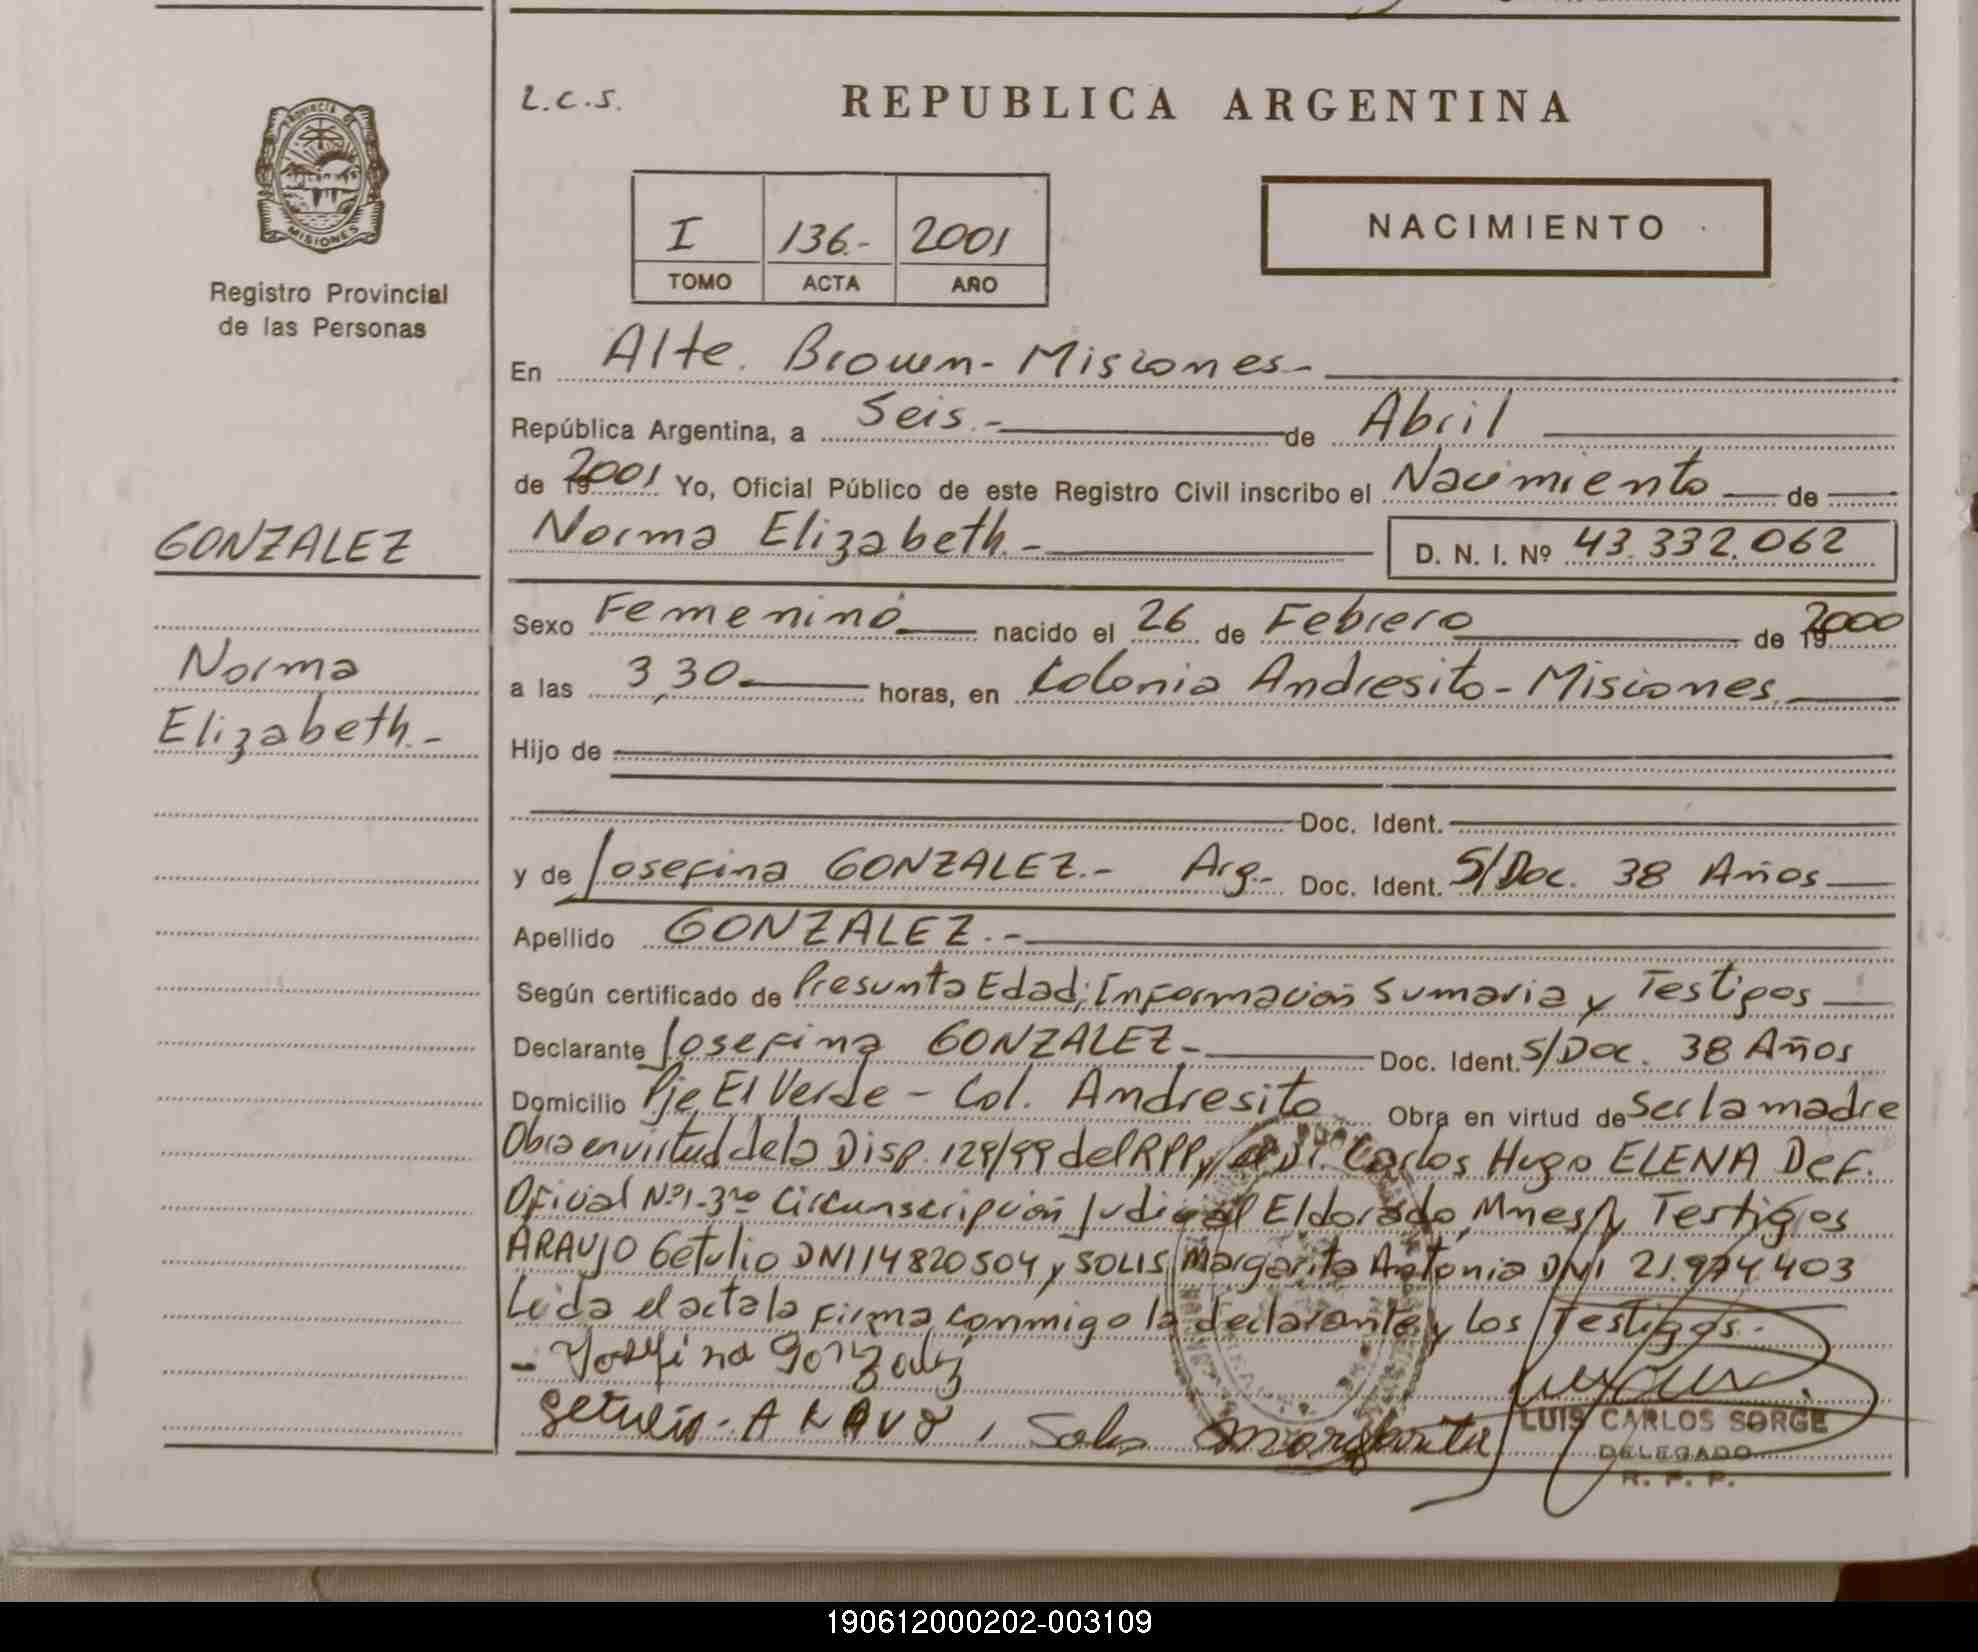 L.C.S.
REPUBLICA ARGENTINA
PROVINCIA DE
MISIONES
Registro Provincial
de las Personas
I 136.- 2001
TOMO ACTA AÑO
NACIMIENTO
En Alte. Brown - Misiones -
República Argentina, a Seis.- de Abril
de 19 2001 Yo, Oficial Público de este Registro Civil inscribo el Nacimiento de
Norma Elizabeth.- D. N. I. Nº 43.332.062
GONZALEZ
Norma
Elizabeth.-
Sexo Femenino nacido el 26 de Febrero de 19 2000
a las 3,30 horas, en Colonia Andresito - Misiones.
Hijo de
Doc. Ident.
y de Josefina GONZALEZ.- Arg.- Doc. Ident. S/Doc. 38 Años
Apellido GONZALEZ.-
Según certificado de Presunta Edad; Información Sumaria y Testigos
Declarante Josefina GONZALEZ.- Doc. Ident. S/Doc. 38 Años
Domicilio Pje El Verde - Col. Andresito Obra en virtud de Ser la madre
Obra en virtud de la Disp. 129/99 del RPP, Dr. Carlos Hugo ELENA Def.
Oficial Nº1-3ra Circunscripción Judicial Eldorado, Mnes, Testigos
ARAUJO Getulio DNI 14820504 y SOLIS Margarita Antonia DNI 21.974.403
Leida el acta la firma conmigo la declarante y los Testigos.-
- Josefina Gonzalez
Getulio - ARAUJO, Solis Margarita
LUIS CARLOS SORGE
DELEGADO
R. P. P.
190612000202-003109